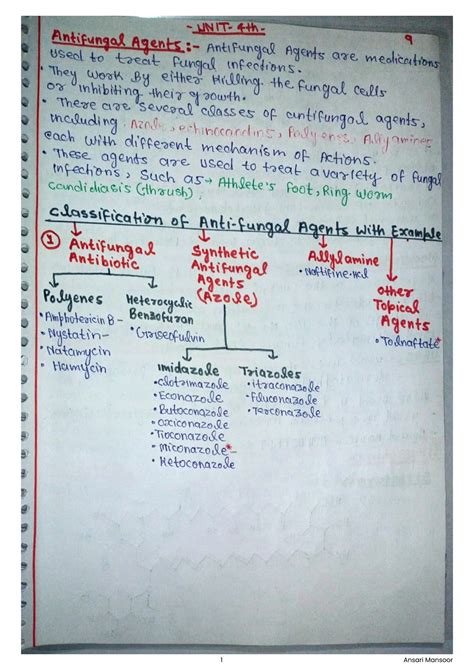 - UNIT- 4th -
9
Antifungal Agents :- Antifungal Agents are medications
used to treat fungal infections.
• They work By either Killing the fungal cells
or inhibiting their growth.
• There are several classes of antifungal agents,
including: Azole, echinocandins, Polyenes, Allyamines
each with different mechanism of Actions.
• These agents are used to treat a variety of fungal
infections, Such as→ Athlete's Foot, Ring worm
candidiasis (thrush).
Classification of Anti-fungal Agents with Example
① Antifungal
Antibiotic
Synthetic
Antifungal
Agents
(Azole)
Allylamine
• Naftifine-Hcl
other
Topical
Agents
• Tolnaftate*
Polyenes
• Amphotericin B -
• Nystatin-
• Natamycin
• Hamycin
Heterocyclic
Benzofuran
• Griseofulvin
imidazole
• clotrimazole
• Econazole
• Butoconazole
• oxiconazole
• Tioconazole
• Miconazole*-
• Ketoconazole
Triazoles
• itraconazole
• Fluconazole
• Terconazole
1
Ansari Mansoor